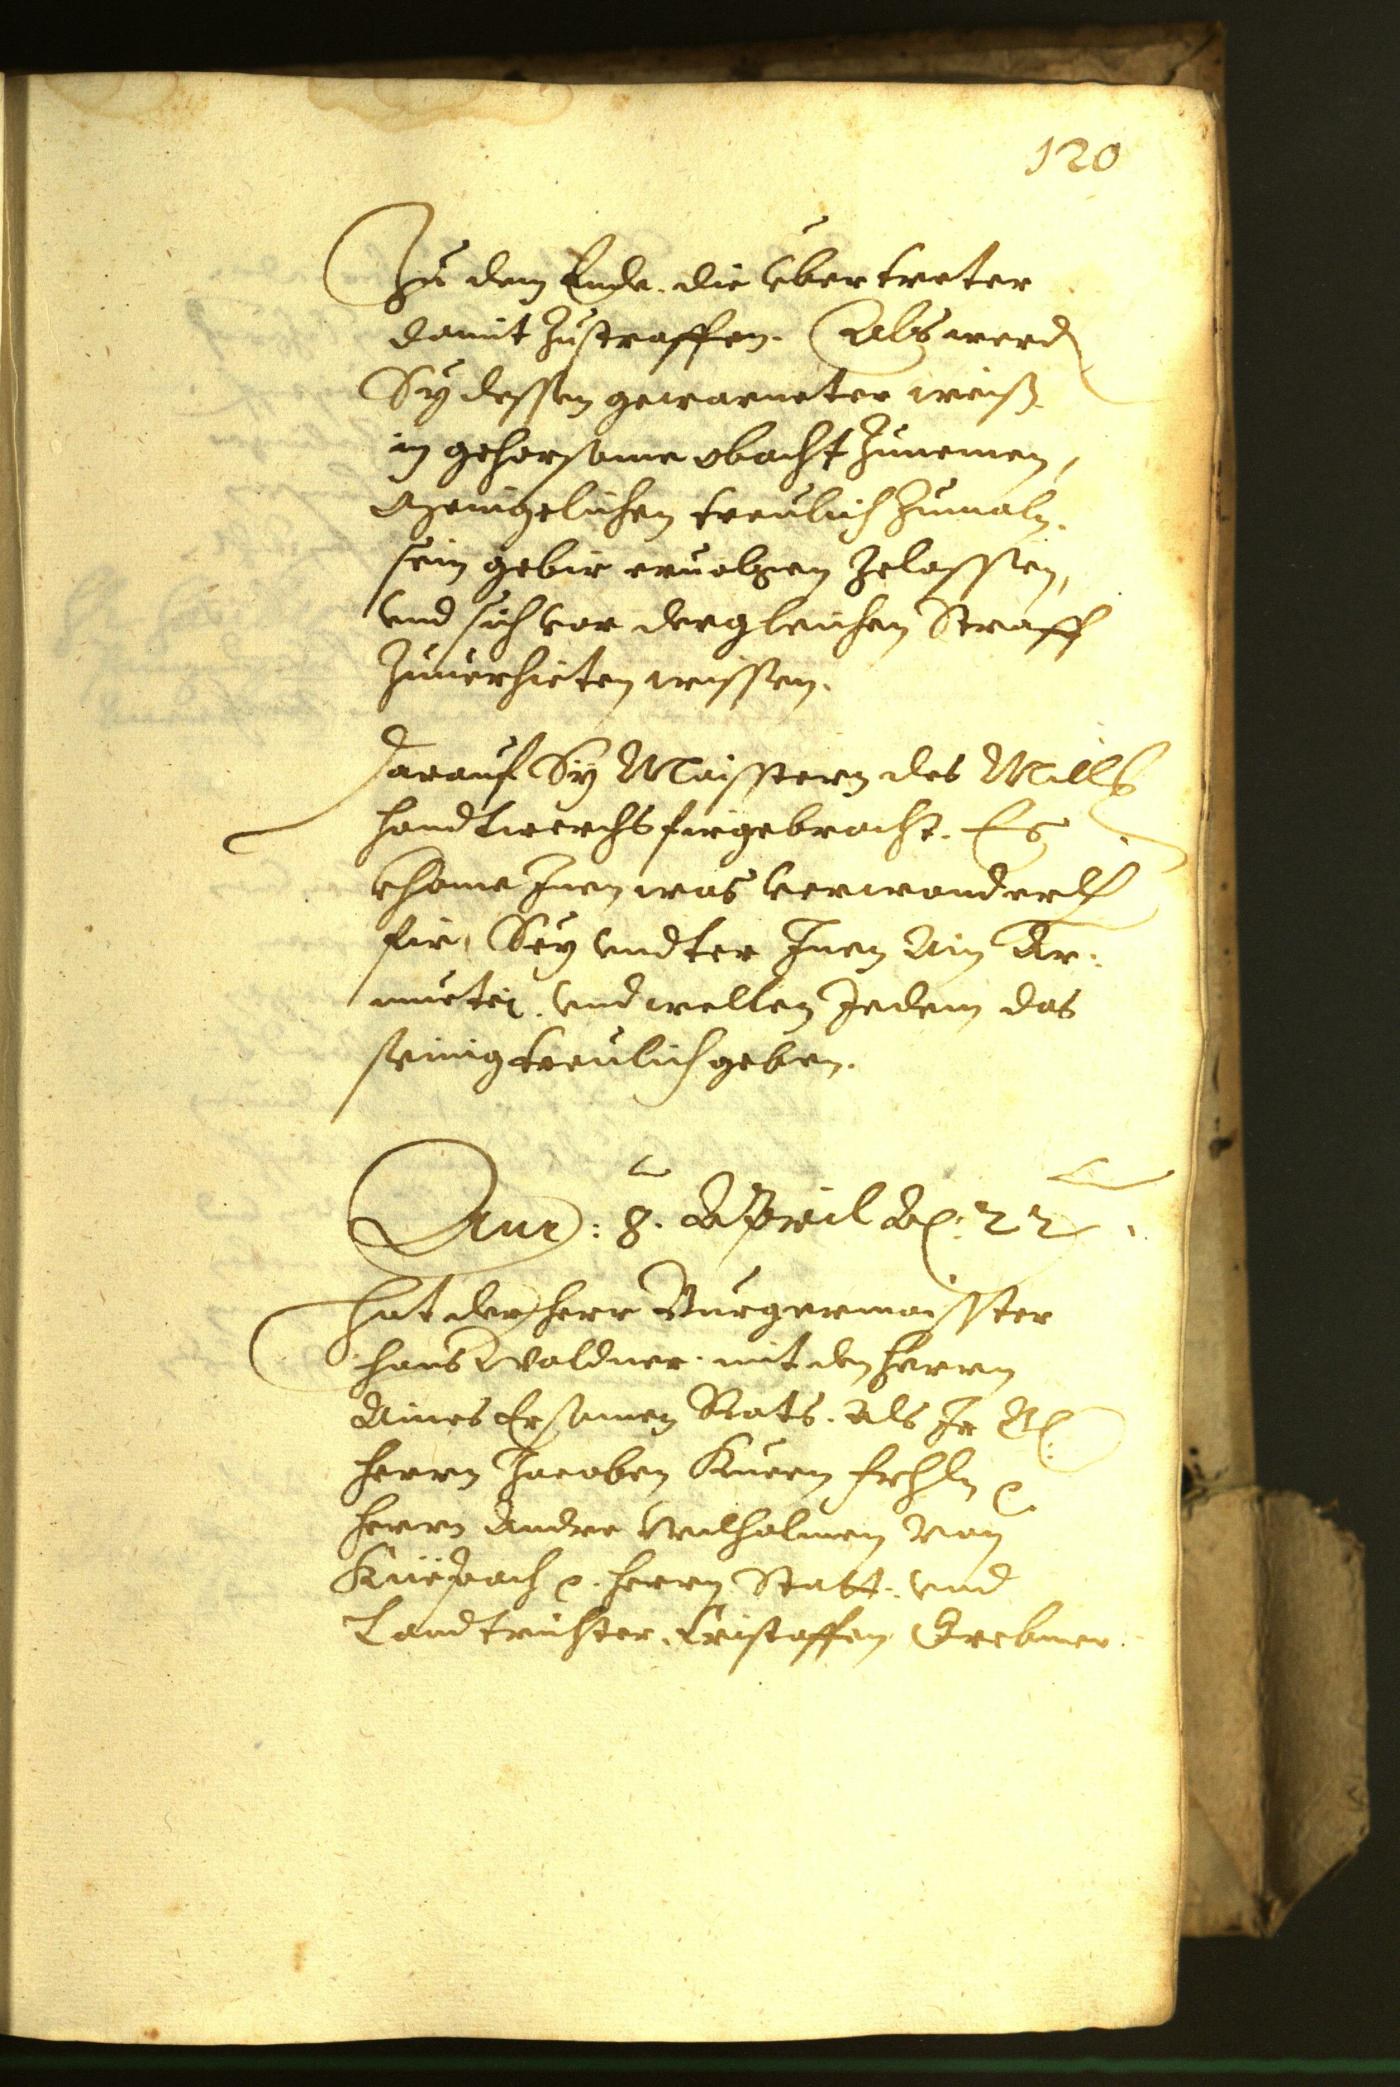 120
Zu dem Ende. die vbertreter
damit Zustraffen. Als werd
Sy dessen gewarneter weiß
in gehorsame obacht Zunemen,
Meingelichen treulich Zumaln.
sein gebir ervolgen Zelassen,
vnd sich vor dergleichen Straff
Zuuerhieten wissen.
darauf Sy Maistern des Mill
handtwerchs firgebracht. Es
khome Inen was verwonderl
fir, Sey vndter Inen Ain Ar-
muetej. vnd wellen Jedem das
seinig treulich geben.
Am: 8. April A: 22
hat der herr Burgermaisster
hans Waldner. mit den herrn
Aines Ersamen Rats. Als Ir
herrn Jacoben Kuern frhln
herrn Andre Wilhalmen von
Küepach herrn Statt. vnd
Landtrichter. Cristoffen Grebmer.